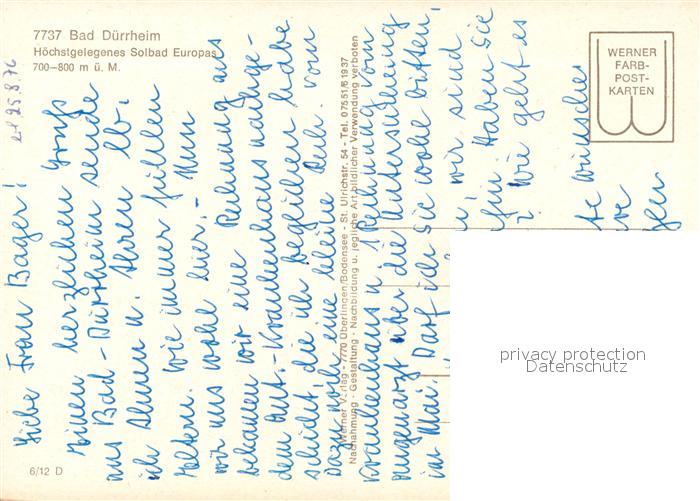 7737 Bad Dürrheim
Höchstgelegenes Solbad Europas
700–800 m ü. M.
WERNER
FARB-
POST-
KARTEN
25.8.76
Liebe Frau Bager!
Einen herzlichen Gruß
aus Bad-Dürrheim sende
ich Ihnen u. Ihren lb.
Eltern. Wie immer fühlen
wir uns wohl hier. – Nun
bekamen wir eine Rechnung aus
dem Krankenhaus nachge-
schickt, die ich beglichen habe
Dazu noch eine kleine vom
Krankenhaus u. 1 Rechnung vom
Augenarzt über die Untersuchung
im Mai. Darf ich Sie wohl bitten,
wir sind
Haben Sie
Wie geht es
te Wünsche
gen
Werner Verlag - 7770 Überlingen/Bodensee - St. Ulrichstr. 54 - Tel. 07551/61937
Nachahmung - Gestaltung - Nachbildung u. jegliche Art bildlicher Verwendung verboten
privacy protection
Datenschutz
6/12 D